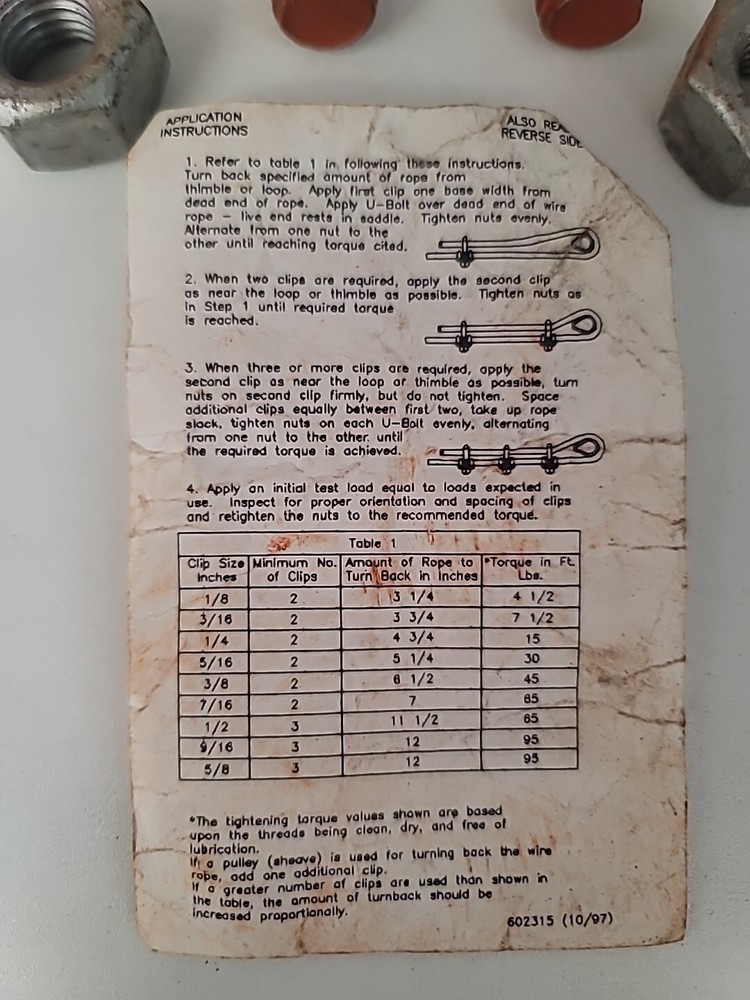 APPLICATION
INSTRUCTIONS
ALSO
REVERSE SIDE
1. Refer to table 1 in following these instructions.
Turn back specified amount of rope from
thimble or loop. Apply first clip one base width from
dead end of rope. Apply U-Bolt over dead end of wire
rope - live end rests in saddle. Tighten nuts evenly.
Alternate from one nut to the
other until reaching torque cited.
2. When two clips are required, apply the second clip
as near the loop or thimble as possible. Tighten nuts as
in Step 1 until required torque
is reached.
3. When three or more clips are required, apply the
second clip as near the loop or thimble as possible, turn
nuts on second clip firmly, but do not tighten. Space
additional clips equally between first two, take up rope
slack, tighten nuts on each U-Bolt evenly, alternating
from one nut to the other until
the required torque is achieved.
4. Apply an initial test load equal to loads expected in
use. Inspect for proper orientation and spacing of clips
and retighten the nuts to the recommended torque.
Table 1
Clip Size Minimum No. Amount of Rope to *Torque in Ft.
Inches of Clips Turn Back in Inches Lbs.
1/8 2 3 1/4 4 1/2
3/16 2 3 3/4 7 1/2
1/4 2 4 3/4 15
5/16 2 5 1/4 30
3/8 2 6 1/2 45
7/16 2 7 65
1/2 3 11 1/2 65
9/16 3 12 95
5/8 3 12 95
*The tightening torque values shown are based
upon the threads being clean, dry, and free of
lubrication.
If a pulley (sheave) is used for turning back the wire
rope, add one additional clip.
If a greater number of clips are used than shown in
the table, the amount of turnback should be
increased proportionally.
602315 (10/97)